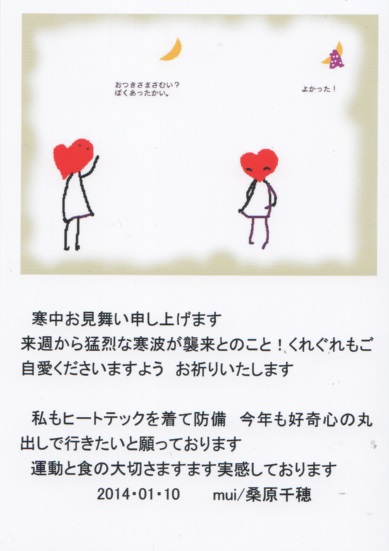 おつきさまさむい？
ぼくあったかい。
よかった！
寒中お見舞い申し上げます
来週から猛烈な寒波が襲来とのこと！くれぐれもご
自愛くださいますよう　お祈りいたします
私もヒートテックを着て防備　今年も好奇心の丸
出しで行きたいと願っております
運動と食の大切さますます実感しております
2014・01・10　　mui/桑原千穂